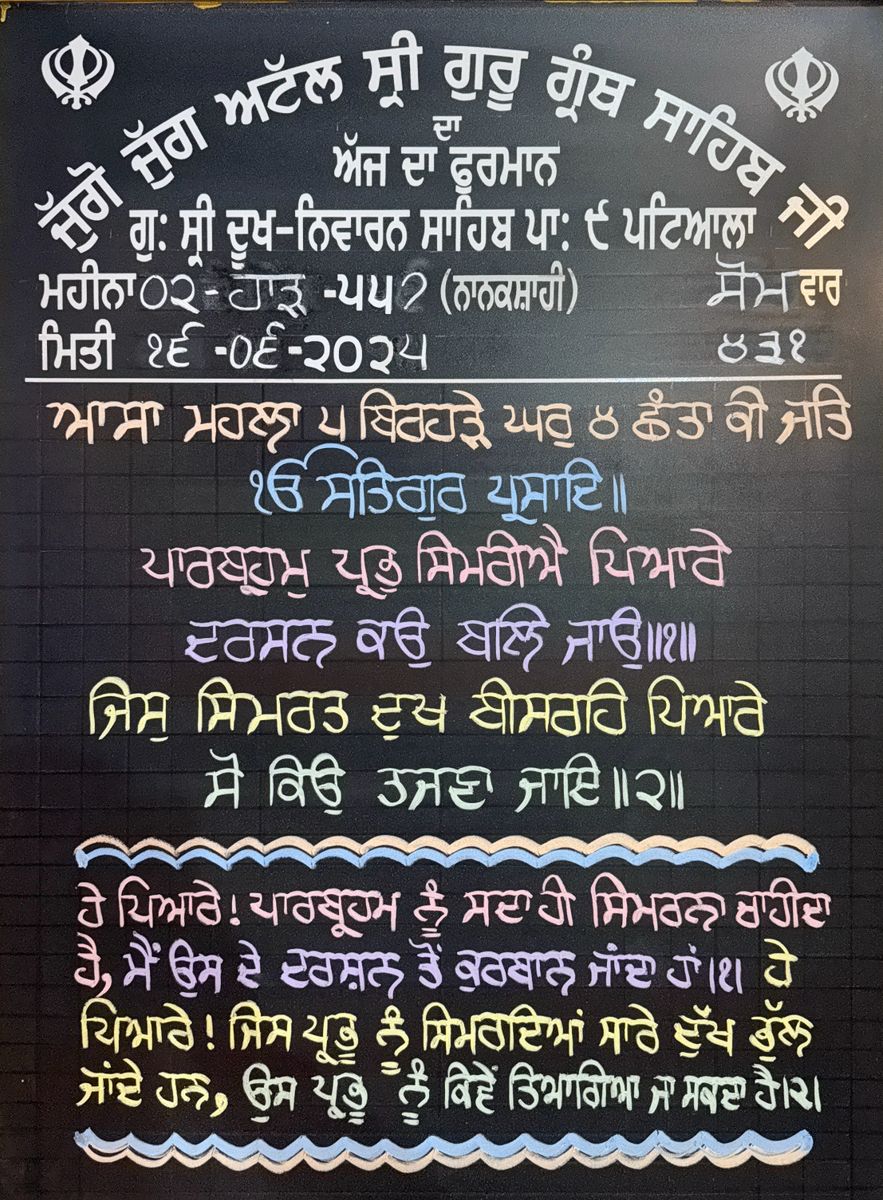 ਜੁੱਗੋ ਜੁੱਗ ਅਟੱਲ ਸ੍ਰੀ ਗੁਰੂ ਗ੍ਰੰਥ ਸਾਹਿਬ ਜੀ
ਦਾ
ਅੱਜ ਦਾ ਫੁਰਮਾਨ
ਗੁ: ਸ੍ਰੀ ਦੂਖ-ਨਿਵਾਰਨ ਸਾਹਿਬ ਪਾ: ੯ ਪਟਿਆਲਾ
ਮਹੀਨਾ ੦੨ - ਹਾੜ - ੫੫੭ (ਨਾਨਕਸ਼ਾਹੀ) ਸੋਮ ਵਾਰ
ਮਿਤੀ ੧੬ -੦੬-੨੦੨੫ ੪੩੧
ਆਸਾ ਮਹਲਾ ੫ ਬਿਰਹੜੇ ਘਰੁ ੪ ਛੰਤਾ ਕੀ ਜਤਿ
ੴ ਸਤਿਗੁਰ ਪ੍ਰਸਾਦਿ॥
ਪਾਰਬ੍ਰਹਮੁ ਪ੍ਰਭੁ ਸਿਮਰੀਐ ਪਿਆਰੇ
ਦਰਸਨ ਕਉ ਬਲਿ ਜਾਉ॥੧॥
ਜਿਸੁ ਸਿਮਰਤ ਦੁਖ ਬੀਸਰਹਿ ਪਿਆਰੇ
ਸੋ ਕਿਉ ਤਜਣਾ ਜਾਇ॥੨॥
ਹੇ ਪਿਆਰੇ! ਪਾਰਬ੍ਰਹਮ ਨੂੰ ਸਦਾ ਹੀ ਸਿਮਰਨਾ ਚਾਹੀਦਾ
ਹੈ, ਮੈਂ ਉਸ ਦੇ ਦਰਸ਼ਨ ਤੋਂ ਕੁਰਬਾਨ ਜਾਂਦਾ ਹਾਂ।੧। ਹੇ
ਪਿਆਰੇ! ਜਿਸ ਪ੍ਰਭੂ ਨੂੰ ਸਿਮਰਦਿਆਂ ਸਾਰੇ ਦੁੱਖ ਭੁੱਲ
ਜਾਂਦੇ ਹਨ, ਉਸ ਪ੍ਰਭੂ ਨੂੰ ਕਿਵੇਂ ਤਿਆਗਿਆ ਜਾ ਸਕਦਾ ਹੈ।੨।